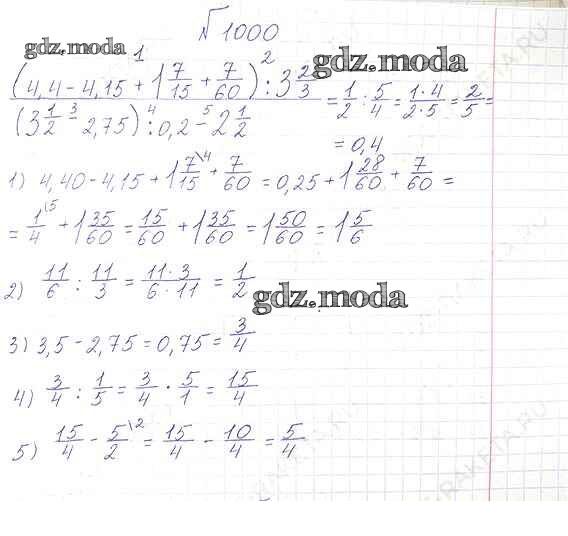 № 1000
gdz.moda
gdz.moda
(4,4 - 4,15 + 1 7/15 + 7/60) : 3 2/3
1 2
(3 1/2 - 2,75) : 0,2 - 2 1/2
3 4 5
= 1/2 : 5/4 = 1·4/2·5 = 2/5 =
= 0,4
1) 4,40 - 4,15 + 1 7\4/15 + 7/60 = 0,25 + 1 28/60 + 7/60 =
= 1\15/4 + 1 35/60 = 15/60 + 1 35/60 = 1 50/60 = 1 5/6
2) 11/6 : 11/3 = 11·3/6·11 = 1/2
gdz.moda
3) 3,5 - 2,75 = 0,75 = 3/4
4) 3/4 : 1/5 = 3/4 · 5/1 = 15/4
5) 15/4 - 5\2/2 = 15/4 - 10/4 = 5/4
RAKETA.RU